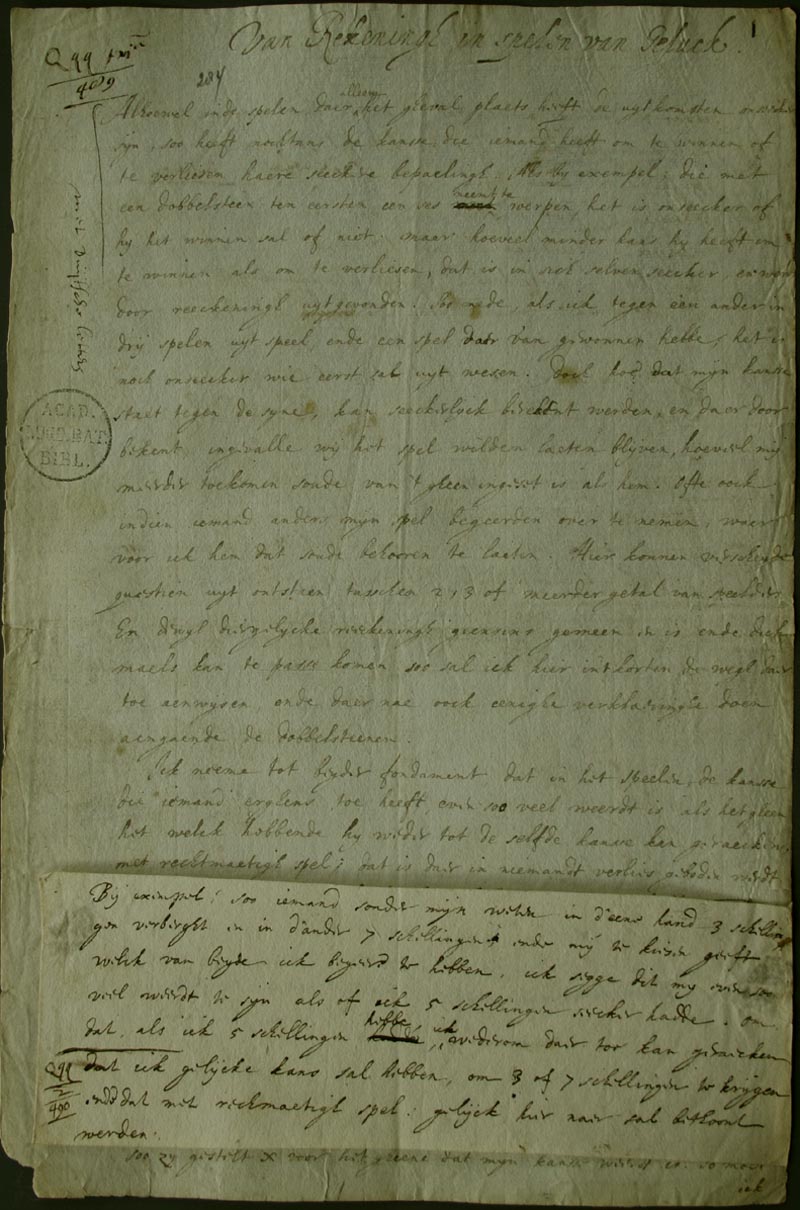 Van Rekeningh in spelen van Geluck.
1
Q 99 fxi
409
284
alleen
Alhoewel inde spelen daer het gheval plaets heeft de uytkomsten onseker
sijn, soo heeft nochtans de kansse die iemand heeft om te winnen of
te verliesen haere seeckere bepaelingh. Als by exempel: die met
een dobbelsteen ten eersten een ses neemt te werpen, het is onseecker of
hy het winnen sal of niet. maar hoeveel minder kans hy heeft om
te winnen als om te verliesen, dat is in sich selven seecker, en werd
door reeckeningh uytgevonden. Soo mede, als ick tegen een ander in
drij spelen uyt speel, ende een spel daer van gewonnen hebbe, het is
noch onseecker wie eerst sal uyt wesen. Doch hoe dat mijn kansse
staet tegen de syne, kan seeckerlyck berekent werden, en daer door
bekent, ingevalle wij het spel wilden laeten blijven, hoeveel mij
meerder toekomen soude van 't gheen ingeset is als hem. Ofte oock
indien iemand anders mijn spel begeerden over te nemen, waer
voor ick hem dat soude behooren te laeten. Hier konnen verscheyde
questien uyt ontstaen tusschen 2, 3 of meerder getal van speelders
En dewyl diergelycke reeckeningh geensins gemeen en is ende dick-
maels kan te passe komen soo sal ick hier int korten de wegh daer
toe aenwysen, ende daer nae oock eenighe verklaeringhe doen
aengaende de dobbelsteenen.
Ick neeme tot beyder fondament dat in het speelen de kansse
die iemand erghens toe heeft, even soo veel weerdt is als het geen
het welck hebbende hy weder tot de selfde kansse kan geraecken
met rechtmaetigh spel; dat is daer in niemandt verlies geboden werdt
Bij exempel; soo iemand sonder mijn weten in d'eene hand 3 schellin-
gen verberght en in d'ander 7 schellingen ende mij te kiesen geeft
welck van beyde ick begeerd te hebben, ick segge dit my even soo
veel weerdt te sijn als of ick 5 schellingen seecker hadde. om
dat, als ick 5 schellingen hebbe, ick wederom daer toe kan geraecken
dat ick gelijcke kans sal hebben, om 3 of 7 schellingen te krijgen
ende dat met rechtmaetigh spel: gelijck hier naer sal bethoont
werden.
Q 99
490
soo zy gestelt x voor het geene dat mijn kansse weerdt is. so moet
ick
ACAD.
LUGD. BAT.
BIBL.